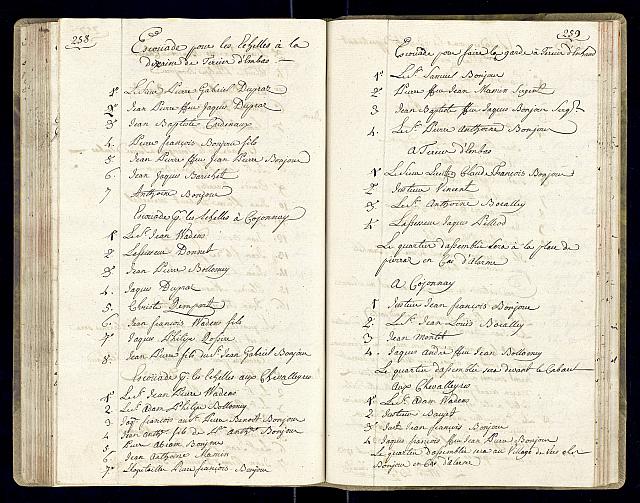 258
Escouade pour les Echelles à la
dixaine de Tercier d'Embas
1° Le Sieur Pierre Gabriel Dupraz
2° Jean Pierre ffeu Jaques Dupraz
3° Jean Baptiste Cardinaux
4. Pierre françois Bonjour fils
5. Jean Pierre ffeu Jean Pierre Bonjour
6. Jean Jaques
7 Anthoine Bonjour
Escouade p. les Echelles à Cojonnay
1° Le Sr. Jean Wadens
2 Lassesseur Donnet
3° Jean Pierre Bottomey
4. Jaques Dupraz
5. Christe
6. Jean françois Wadens fils
7° Jaques Philipe
8. Jean Pierre fils du Sr. Jean Gabriel Bonjour
Escouade p. les Echelles aux Chevalleyres
1° Le Sr. Jean Pierre Wadens
2. Le Sr. Adam Philipe Bottomey
3. françois Pierre Benoit Bonjour
4 Jean fils de Bonjour
5 Pierre Abram Bonjour
6 Jean Anthoine Mamin
7° Pierre françois Bonjour
259
Escouade pour faire la garde à Tercier d'Enhaut
1° Le Sr. Samuel Bonjour
2° Pierre ffeu Jean Mamin Sergent
3 Jean Baptiste ffeu Jaques Bonjour Sergt
4. Le Sr. Pierre Anthoine Bonjour
A Tercier d'Embas
1° Le Sieur Claude François Bonjour
2° Justicier Vincent
3° Le Sr. Anthoine
4° Lassesseur Jaques
Le quartier dassemblée sera à la place de
en Cas d'alarme
A Cojonnay
1 Justicier Jean françois Bonjour
2. Le Sr. Jean Louis
3 Jean
4. Jaques André ffeu Jean Bottomey
Le quartier dassemblée sera devant le Cabaret
Aux Chevalleyres
1° Le Sr. Adam Wadens
2. Justicier
3° Jean françois Bonjour
4 Jaques françois ffeu Jean Pierre Bonjour
Le quartier dassemblée sera au Village
Bonjour en Cas d'alarme